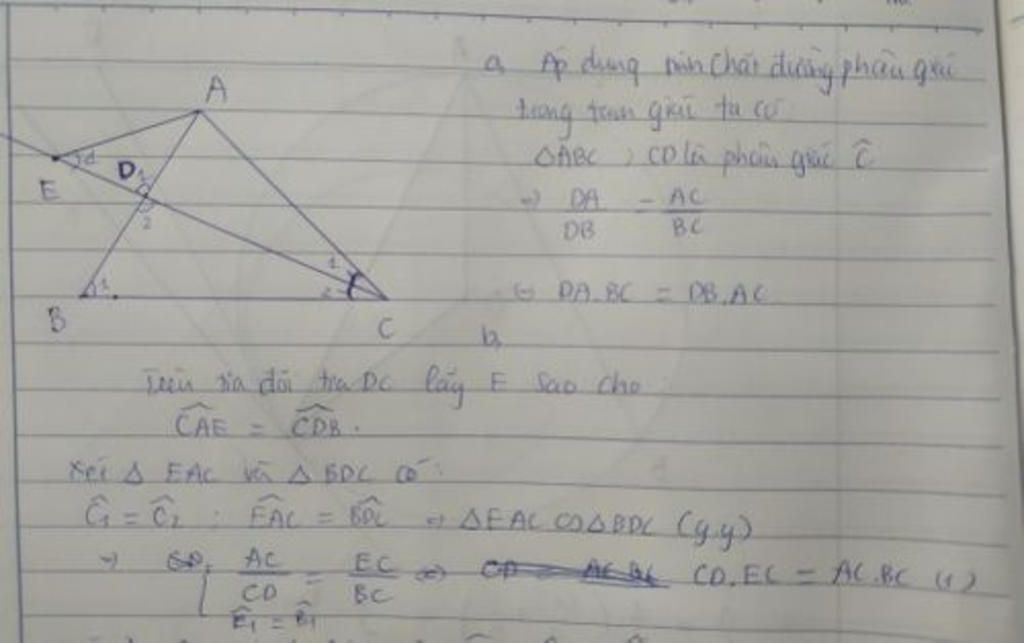 A
E
D
1
2
B
1
C
1
2
a, Áp dụng tính chất đường phân giác
trong tam giác ta có
ΔABC , CD là phân giác Ĉ
=> DA/DB = AC/BC
<=> DA.BC = DB.AC
b,
Trên tia đối tia DC lấy E sao cho
CAE^ = CDB^.
Xét Δ EAC và Δ BDC có:
Ĉ1 = Ĉ2 ; EAC^ = BDC^ => ΔEAC ∽ ΔBDC (g.g)
=> { AC/CD = EC/BC <=> CD.EC = AC.BC (1)
Ê1 = B̂1